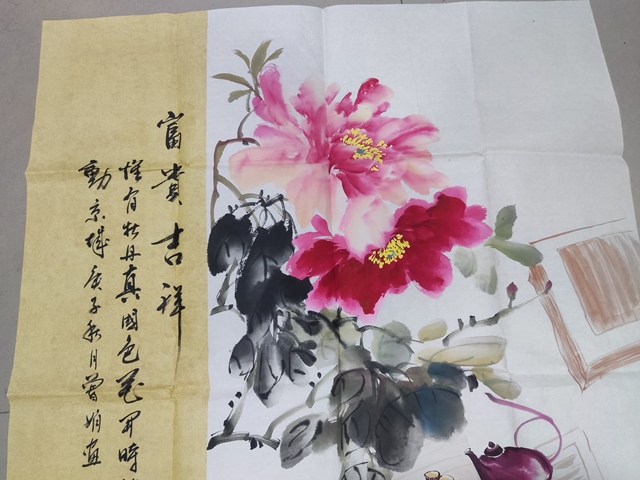 富貴吉祥
惟有牡丹真國色花開時
動京城庚子秋月曾娟畫